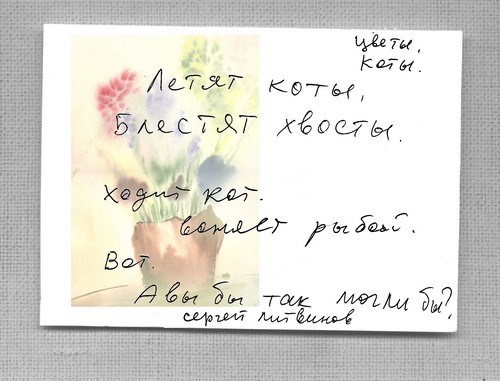 цветы,
коты.
Летят коты,
Блестят хвосты.
Ходит кот.
воняет рыбой.
Вот.
А вы бы так могли бы?
сергей литвинов